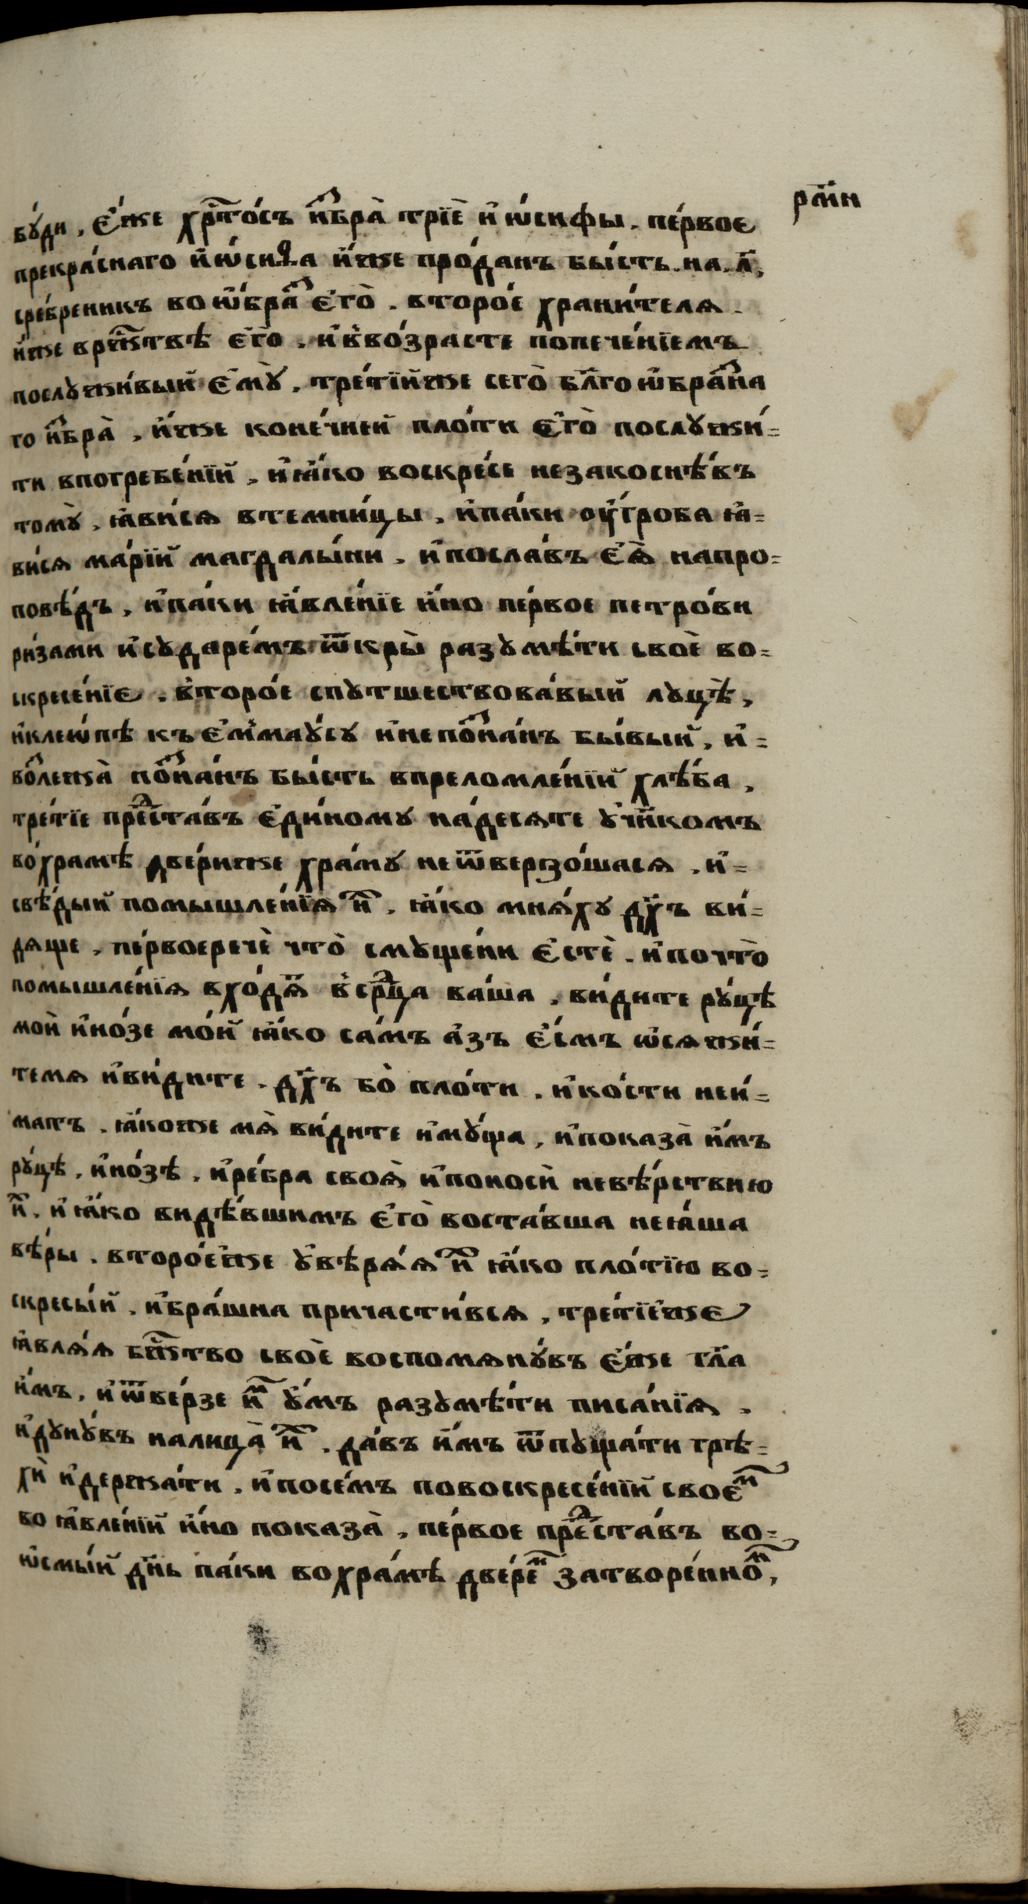 рм҃и
бꙋ́ди, є҆́же хрⷭ҇то́съ и҆збра̀ трїѐ и҆ ѡ҆́сифы. пе́рвоє
прекра́снаго и҆ѡ́сиѳа и҆́же про́данъ бы́сть. на. л҃,
сре́бреникъ во ѡ҆́бразъ є҆го̀. второ́е храни́теля.
и҆́же врⷤ҇твѣ є҆го̀. и҆ в во́зрасте попече́нїемъ
послꙋжи́вый є҆мꙋ̀, тре́тїйже сего̀ бл҃гоѡ҆бра́зна
го и҆збра̀, и҆́же коне́чнѣй пло́ти є҆го̀ послꙋжи́=
ти впогребе́нїй, и҆ ꙗ҆́ко воскре́се незакоснѣ́въ
томꙋ̀, ꙗ҆ви́ся в темни́цы, и҆ па́ки оу҆ гро́ба ꙗ҆=
ви́ся ма́рїй магдалы́ни. и҆ посла́въ є҆ѧ̀ напро=
повѣ́дъ, и҆ па́ки ꙗ҆вле́нїе и҆́но пе́рвое петро́ви
ри́зами и҆ сꙋдаре́мъ ѿкры̀ разꙋмѣ́ти своѐ во=
скресе́нїе. второ́е спꙋтшествова́вый лꙋцѣ̀,
и҆ клеѡ́пѣ къ є҆ммаꙋ́сꙋ и҆ не позна́нъ бы́вый, и҆=
во́лежа̀ позна́нъ бы́сть впреломле́нїй хлѣ́ба,
тре́тїе предста́въ є҆ди́номꙋ на́десяте ᲂу҆чн҃комъ
во́храмѣ две́риже хра́мꙋ не ѿверзо́шася. и҆=
свѣ́дый помышле́нїя и҆́хъ, ꙗ҆́ко мня́хꙋ дх҃ъ ви́=
дяще, пе́рвоеречѐ что̀ смꙋще́ни є҆стѐ. и҆ почто̀
помышле́нїя вхо́дятъ в срⷣца ва́ша, ви́дите рꙋ́цѣ
мои̑ и҆ но́зе мо́й ꙗ҆́ко са́мъ а҆́зъ є҆́смъ ѡ҆сяжи́=
темя и҆ ви́дите. дх҃ъ бо̀ пло́ти, и҆ ко́сти неи́=
матъ. ꙗ҆́коже мѧ̀ ви́дите и҆мꙋ́ща, и҆ показа̀ и҆́мъ
рꙋ́цѣ, и҆ но́зѣ, и҆ ре́бра своѧ̀ и҆ поноси̑ невѣ́рствию
и҆́хъ. и҆ ꙗ҆́ко видѣ́вшимъ є҆го̀ воста́вша неꙗ́ша
вѣ́ры. второ́еже ᲂу҆вѣря́я и҆́хъ ꙗ҆́ко пло́тїю во=
скресы́й, и҆ бра́шна причасти́вся, тре́тїеже
ꙗ҆вля́я бжⷭ҇тво своѐ воспомянꙋ́въ є҆́же гл҃а
и҆́мъ, и҆ ѿве́рзе и҆́мъ ᲂу҆́мъ разꙋмѣ́ти писа́нїя.
и҆ дꙋнꙋ́въ налица̀ и҆́хъ. да́въ и҆́мъ ѿпꙋща́ти грѣ=
хи̑ и҆ держа́ти, и҆ посе́мъ повоскресе́нїй своє́мъ
во ꙗ҆вле́нїй и҆́но показа̀, пе́рвое предста́въ во=
ѡ҆смы́й дн҃ь па́ки во хра́мѣ две́ремъ затворе́нномъ,